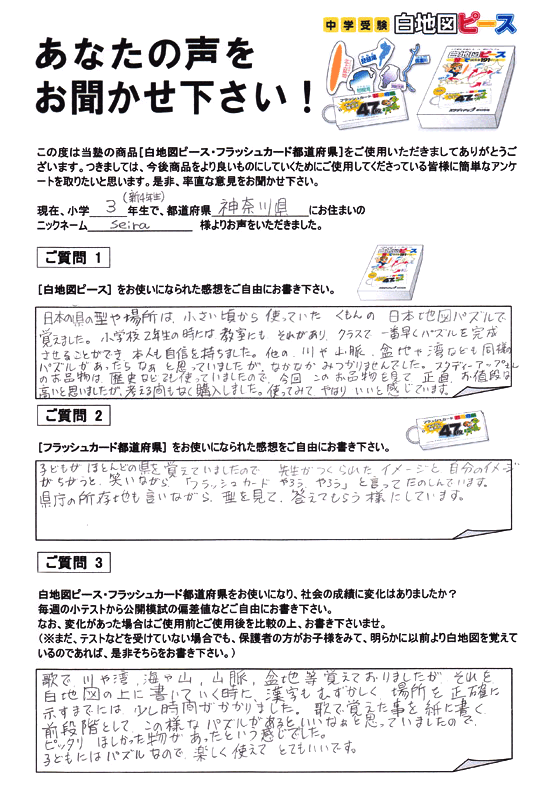 中学受験 白地図ピース
あなたの声を
お聞かせ下さい！
この度は当塾の商品[白地図ピース・フラッシュカード都道府県]をご使用いただきましてありがとうご
ざいます。つきましては、今後商品をより良いものにしていくためにご使用してくださっている皆様に簡単なアンケ
ートを取りたいと思います。是非、率直な意見をお聞かせ下さい。
(新4年生)
現在、小学 3 年生で、都道府県 神奈川県 にお住まいの
ニックネーム seira 様よりお声をいただきました。
ご質問 1
[白地図ピース] をお使いになられた感想をご自由にお書き下さい。
日本の県の型や場所は、小さい頃から使っていた くもんの 日本地図パズルで
覚えました。小学校2年生の時には教室にも それがあり、クラスで一番早くパズルを完成
させることができ 本人も自信を持ちました。他の、川や山脈、盆地や湾なども同様の
パズルがあったらなぁと思っていましたが、なかなかみつかりませんでした。スタディーアップさん
のお品物は、歴史なども使っていましたので、今回 このお品物を見て、正直、お値段は
高いと思いましたが、考える間もなく購入しました。使ってみて やはり いいと感じています。
ご質問 2
[フラッシュカード都道府県] をお使いになられた感想をご自由にお書き下さい。
子どもが ほとんどの県を覚えていましたので 先生がつくられた イメージと 自分のイメージ
がちがうと、笑いながら、「フラッシュカード やろう、やろう」と言って たのしんでいます。
県庁の所在地も言いながら、型を見て、答えてもらう様にしています。
ご質問 3
白地図ピース・フラッシュカード都道府県をお使いになり、社会の成績に変化はありましたか？
毎週の小テストから公開模試の偏差値などご自由にお書き下さい。
なお、変化があった場合はご使用前とご使用後を比較の上、お書き下さいませ。
(※まだ、テストなどを受けていない場合でも、保護者の方がお子様をみて、明らかに以前より白地図を覚えて
いるのであれば、是非そちらをお書き下さい。)
歌で 川や湾、海や山、山脈、盆地等覚えておりましたが それを
白地図の上に書いていく時に、漢字もむずかしく、場所を正確に
示すまでには 少し時間がかかりました。歌で覚えた事を紙に書く
前段階として、この様なパズルがあるといいなぁと思っていましたので、
ピッタリ ほしかった物があったという感じでした。
子どもにはパズルなので、楽しく使えて とてもいいです。